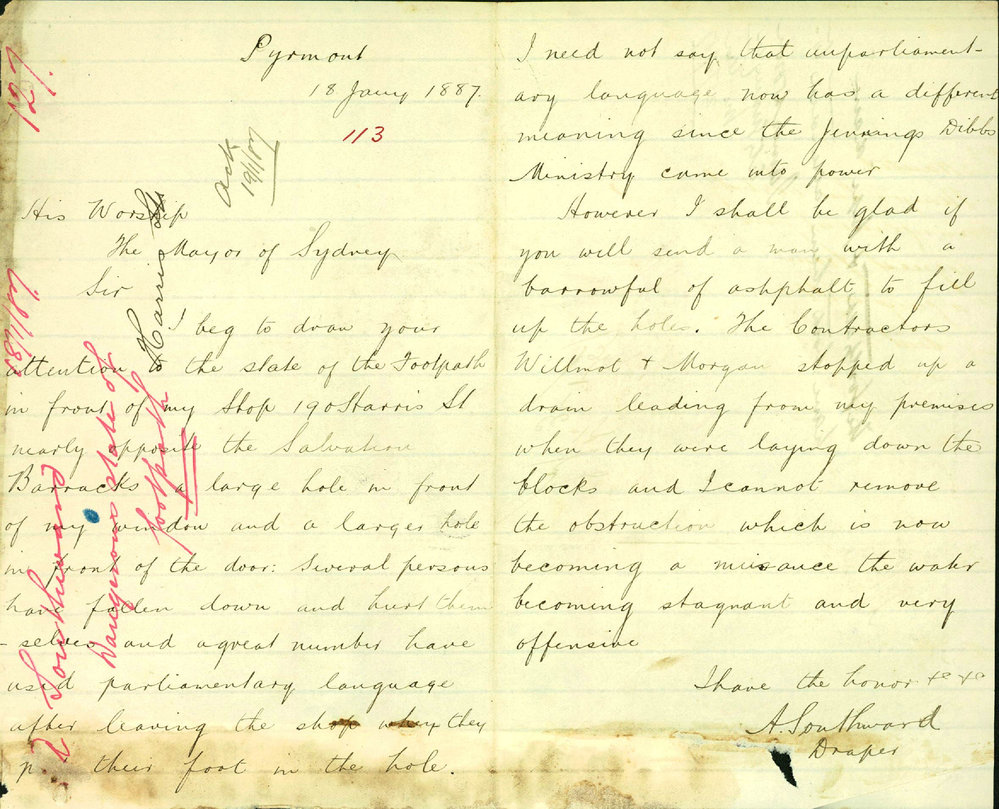 Pyrmont
18 Jany 1887.
113
Ack
19/1/87
His Worship
The Mayor of Sydney
Sir
I beg to draw your
attention to the state of the Footpath
in front of my Shop 190 Harris St
nearly opposite the Salvation
Barracks a large hole in front
of my window and a larger hole
in front of the door: Several persons
have fallen down and hurt them
-selves and a great number have
used parliamentary language
after leaving the shop when they
their foot in the hole.
127.
18/1/87.
A Southward
Dangerous state of
footpath
Harris St
I need not say that unparliament-
ary language now has a different
meaning since the Jennings Dibbs
Ministry came into power
However I shall be glad if
you will send a man with a
barrowful of ashphalt to fill
up the holes. The Contractors
Willmot & Morgan stopped up a
drain leading from my premises
when they were laying down the
blocks and I cannot remove
the obstruction which is now
becoming a nuisance the water
becoming stagnant and very
offensive
I have the honor &c &c
A. Southward
Draper